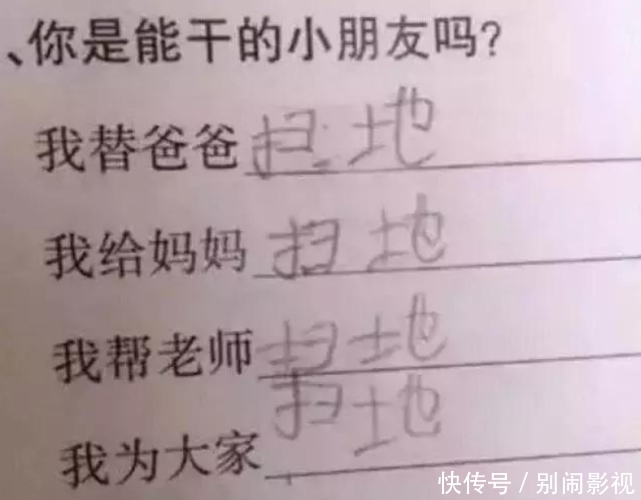 、你是能干的小朋友吗?
我替爸爸扫地
我给妈妈扫地
我帮老师扫地
我为大家扫地
快传号/别闹影视